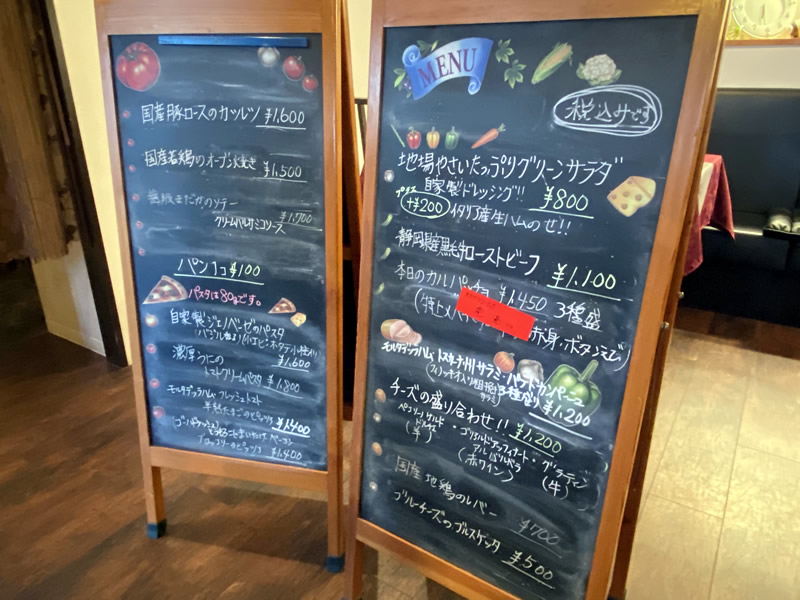 国産豚ロースのカツレツ ¥1,600
国産若鶏のオーブン焼き ¥1,500
のソテー ¥1,700
クリームバルサミコソース
パン1コ ¥100
パスタは80gです。
自家製ジェノベーゼのパスタ
¥1,600
濃厚うにの
トマトクリームパスタ ¥1,800
モルタデッラハム フレッシュトマト
半熟たまごのピッツァ ¥1,400
ベーコン
ブロッコリーのピッツァ ¥1,400
MENU
税込みです
地場やさいたっぷりグリーンサラダ
自家製ドレッシング!! ¥800
プラス +¥200 イタリア産生ハムのせ!!
静岡県産黒毛牛ローストビーフ ¥1,100
本日のカルパッチョ ¥1,450 3種盛
赤身・ボタンえび)
モルタデッラハム トスカーナ州サラミ・パテドカンパーニュ
3種盛り ¥1,200
チーズの盛り合わせ!! ¥1,200
(羊) (赤ワイン) (牛)
国産地鶏のレバー ¥700
ブルーチーズのブルスケッタ ¥500